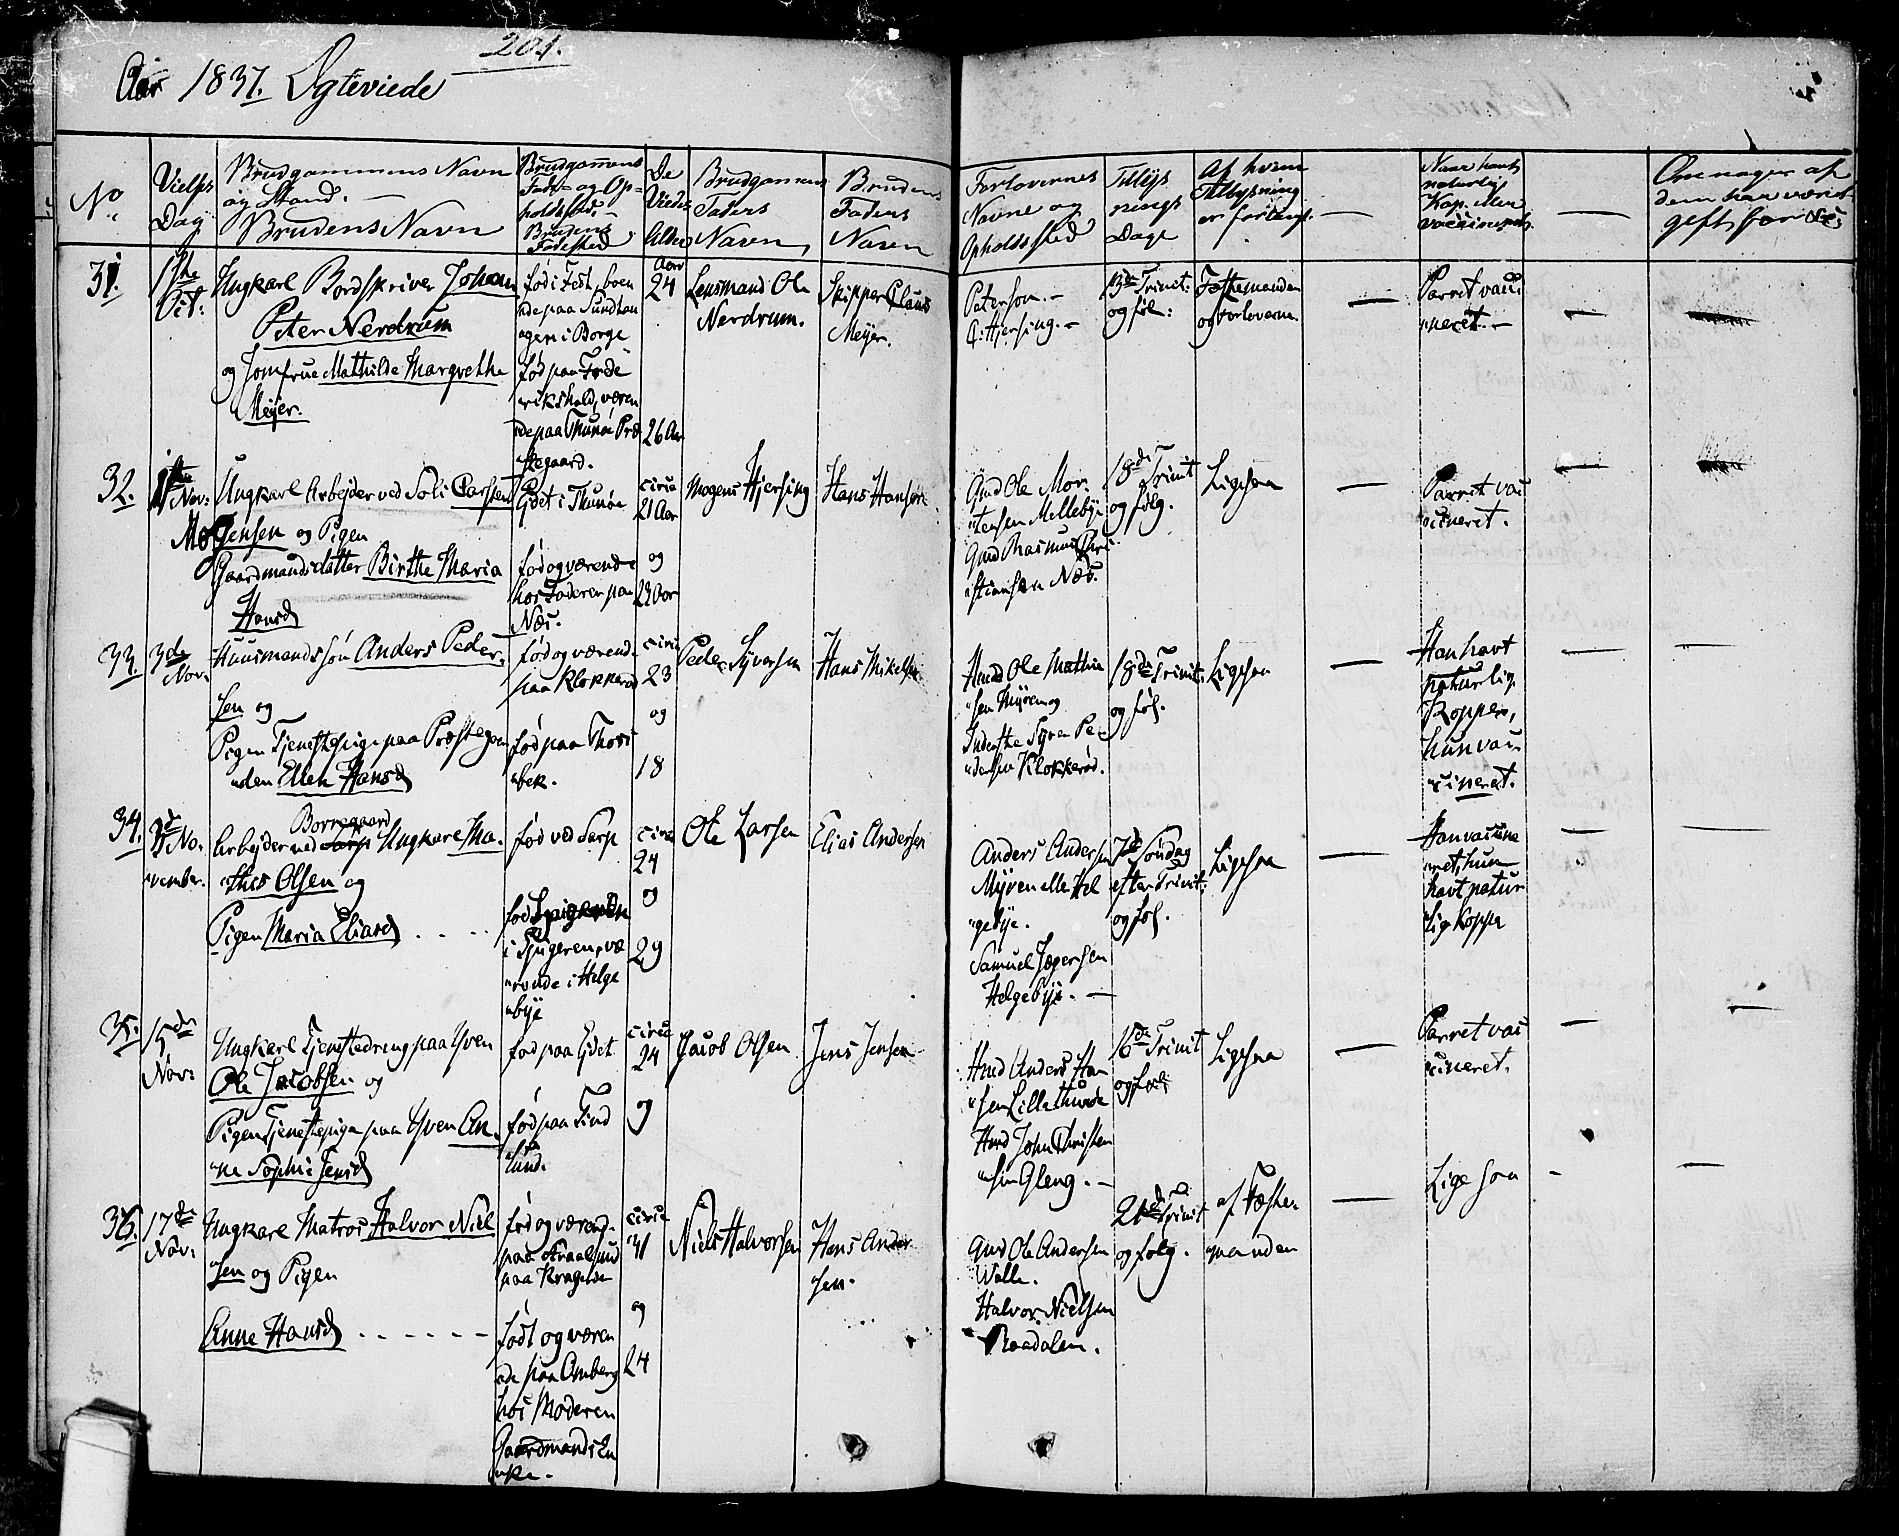 201.
Aar 1837. Ægteviede
No
Vielses Dag
Brudgommens Navn
og Stand. —
Brudens Navn
Brudgomens
Føde- og Op-
holdssted. —
Brudens
Fødested
De
Viedes
Alder
Brudgomens
Faders
Navn,
Brudens
Faders
Navn
Forlovernes
Navne og
Opholdssted
Tillys
nings
Dage
Af hvem
Tillysning
er forlangt
Naar havt
naturlig
Kop. eller
vaccineret.
Om nogen af
dem har været
gift før &c:
31.
Oct:
Ungkarl Bordskriver Johan
Peter Nerdrum
og Jomfrue Mathilde Margrethe
Meyer.
født i Fest, boen
de paa Sundhau
gen i Borge
fød paa Frede
rikshald, væren
de paa Thunøe Præ
stegaard.
Aar
24
26 Aar
Lensmand Ole
Nerdrum.
Skipper Claus
Meyer.
Peterson. —
C: Hjersing. —
13de Trinit:
og føl:
Festemanden
og Forloverne.
Parret vacci
neret. —
32.
1ste
Nov:
Ungkarl Arbejder ved Soli Carsten
Mogensen og Pigen
Gaardmandsdatter Birthe Maria
Hansd
Ejdet i Thunøe
fød og værende
hos Faderen paa
Næs.
circa
21 Aar
og
22 Aar
Mogens Hjersing
Hans Hansen
Gmd Ole Mor
tensen Mellebye
Gmd Rasmus Chri
stiansen Næs.
18de Trinit
og følg.
Ligesaa
Parret vac
cineret.
33.
3de
Nov:
Huusmandssøn Anders Peder
sen og
Pigen Tjenestepige paa Præstegaar
den Ellen Hansd
fød og værend.
paa Klokkerød
fød paa Thors
bek.
circa
23
og
18
Peder Syversen
Hans Mikelsen
Hmd Ole Mathia
sen Myren og
Inderste Syver Pe
dersen Klokkerød.
18de Trinit:
og føl.
Ligesaa
Han havt
naturlig
Kopper,
hun vac
cineret.
34.
3de No
vember.
Borregaard
Arbejder ved Sarp Ungkarl Ma
thes Olsen og
Pigen Maria Eliasd . . . .
fød ved Sarp
fød
i Spigeren, væ
rende i Helge
bye
circa
24
og
29
Ole Larsen
Elias Andersen
Anders Andersen
Myren elle Hel
gebye.
Samuel Jægersen
Helgebye. —
Søndag
efter Trinit:
og føl.
Ligesaa
Han vaccine
ret, hun
havt natur
lig Kopper
35.
15de
Nov:
Ungkarl Tjenestedreng paa Yven
Ole Jacobsen og
Pigen Tjenestepige paa Yven An
ne Sophie Jensd
fød paa Ejdet
fød paa Tind
lund.
circa
24
og
Jacob Olsen
Jens Jensen
Hmd Anders Han
sen Lille Thunøe
Hmd John Christen
sen Gleng. —
16de Trinit
og føl:
Ligesaa
Parret vac
cineret.
36.
17de
Nov:
Ungkarl Matros Halvor Niel
sen og Pigen
Anne Hansd - - - - - -
fød og værend.
paa Kraakesund
paa Kragerøe
født og væren
de paa Omberg
hos Moderen
Gaardmands En
ke.
circa
31
og
24
Niels Halvorsen
Hans Ander
sen.
Gmd Ole Andersen
Walle.
Halvor Nielsen
Raadalen.
21de Trinit
og følg.
af Fæste
manden
Lige saa